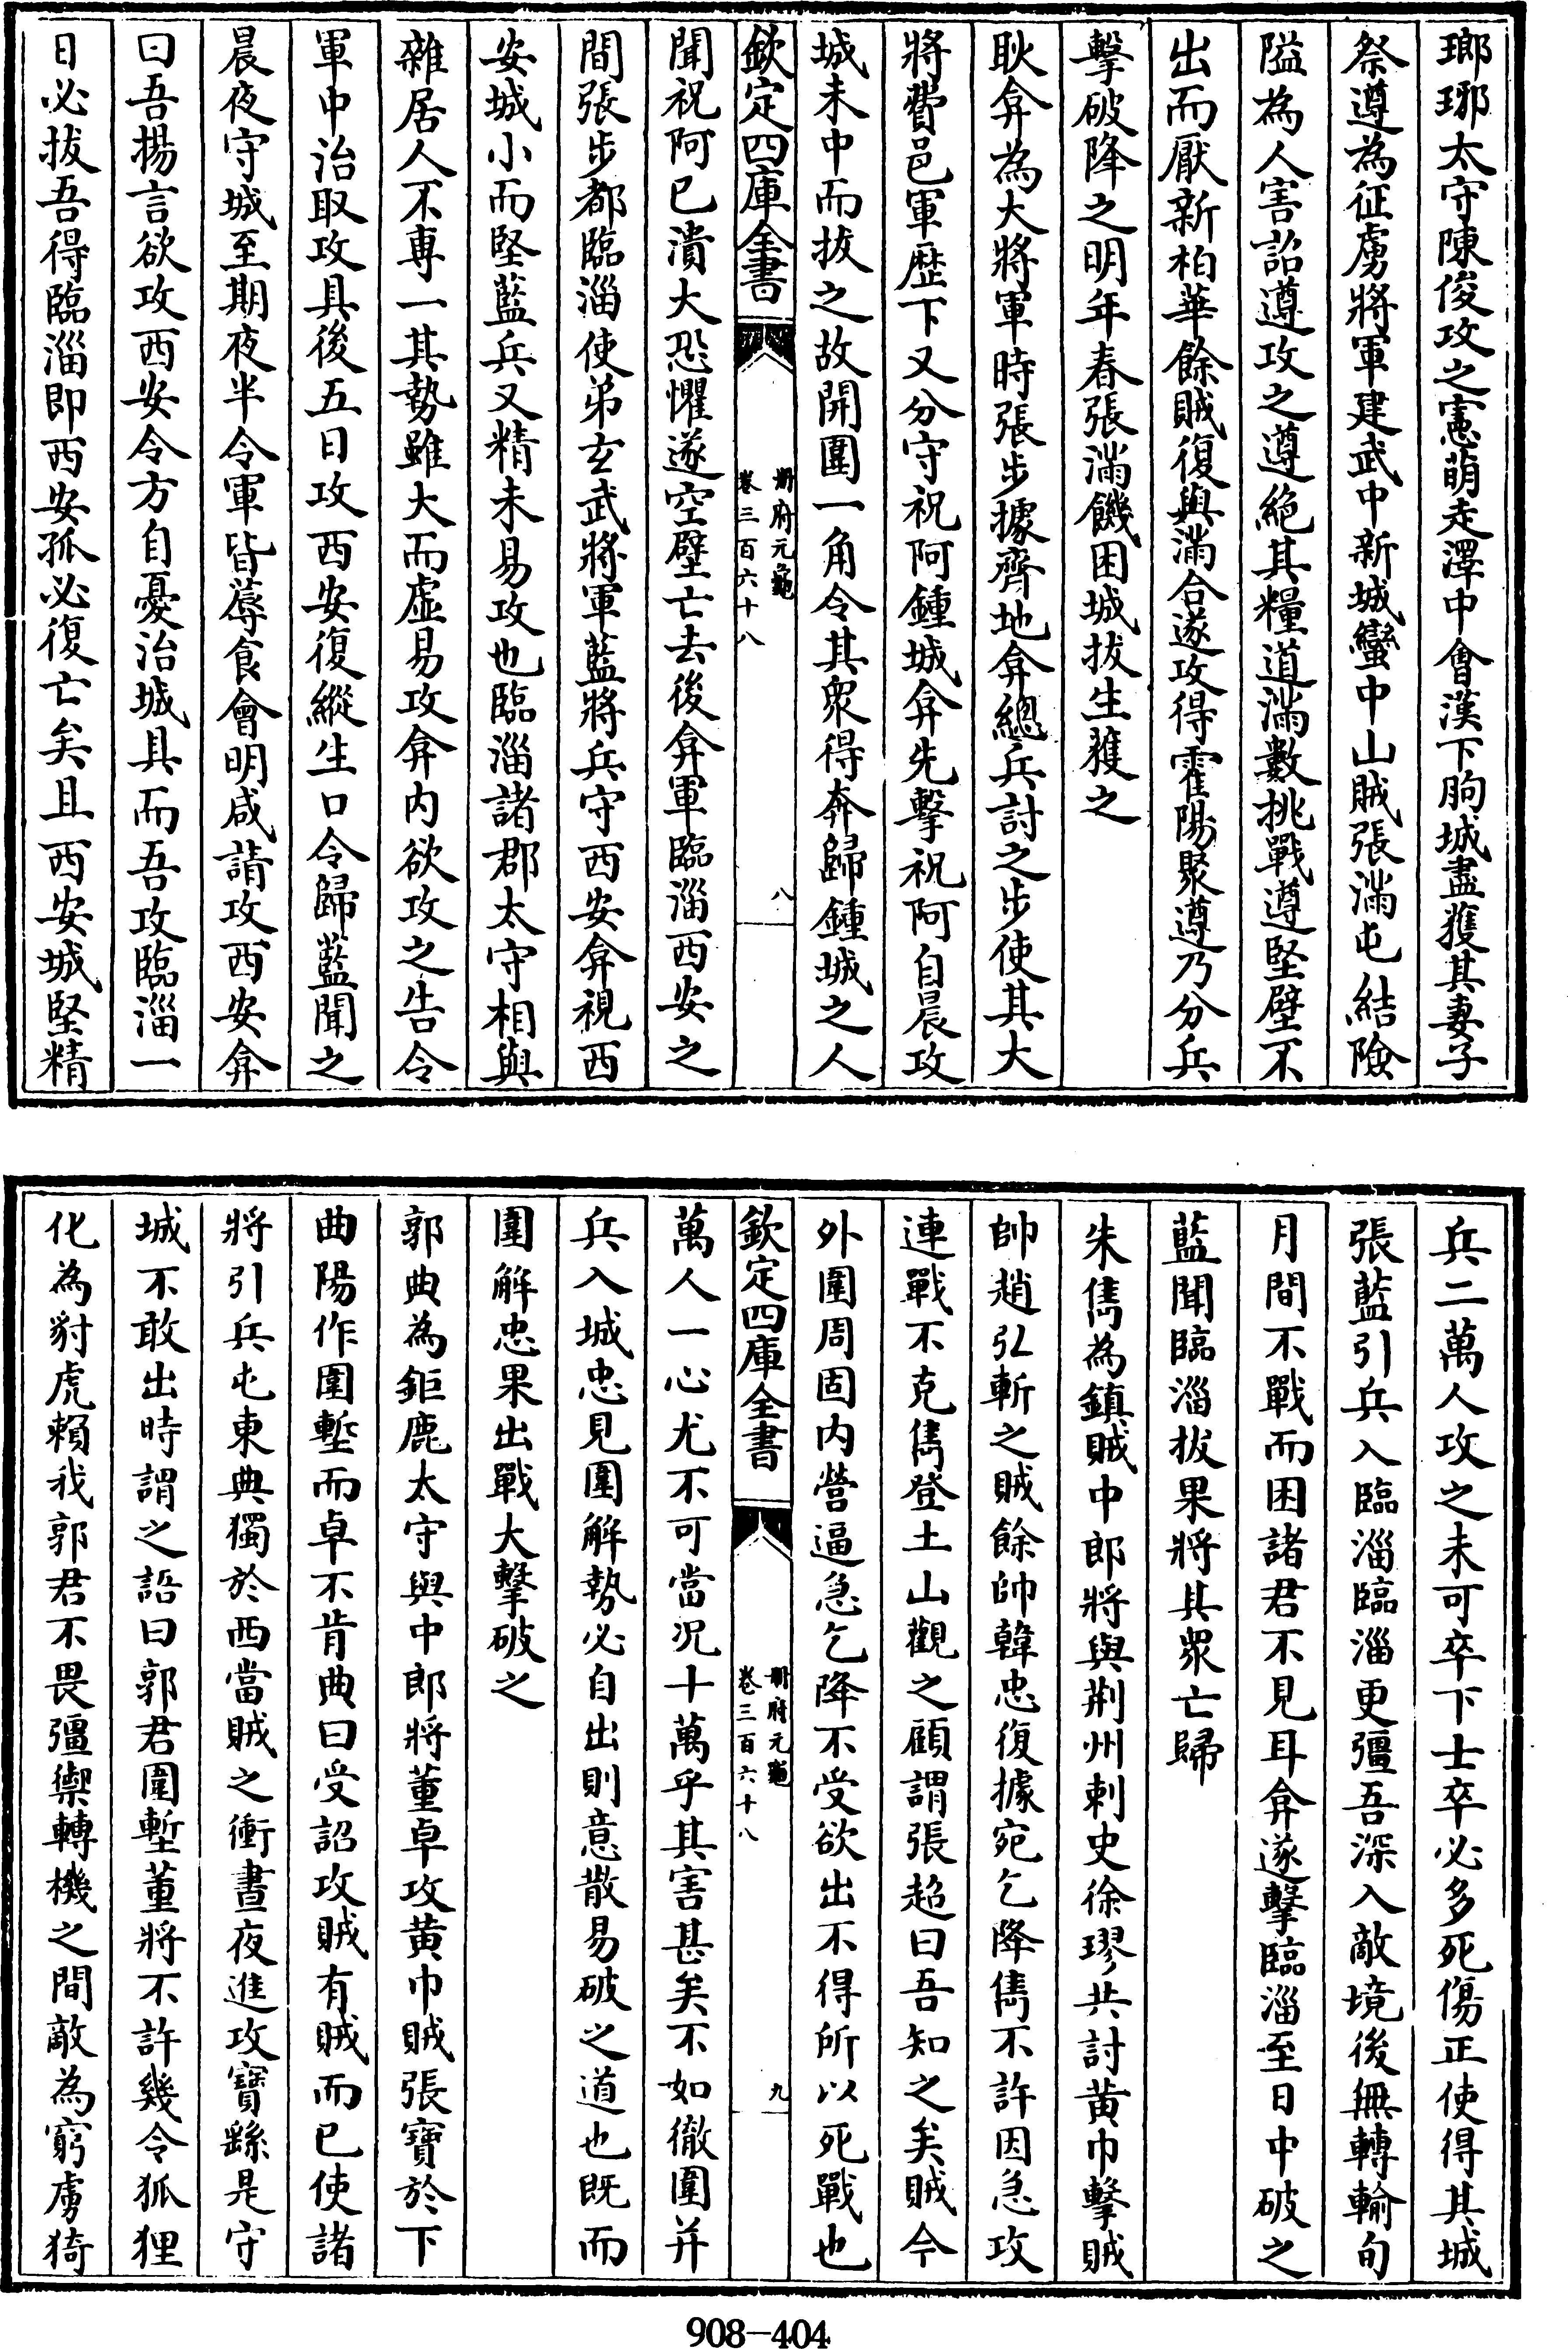 瑯琊太守陳俊攻之憲萌走澤中會漢下朐城盡獲其妻子
祭遵為征虜將軍建武中新城蠻中山賊張滿屯結險
隘為人害詔遵攻之遵絶其糧道滿數挑戰遵堅壁不
出而厭新柏華餘賊復與滿合遂攻得霍陽聚遵乃分兵
擊破降之明年春張滿饑困城拔生獲之
耿弇為大將軍時張步據齊地弇總兵討之步使其大
將費邑軍歴下又分守祝阿鍾城弇先擊祝阿自晨攻
城未中而拔之故開圍一角令其衆得奔歸鍾城之人
欽定四庫全書
册府元龜
卷三百六十八
八
聞祝阿已潰大恐懼遂空壁亡去後弇軍臨淄西安之
間張步都臨淄使弟玄武將軍藍將兵守西安弇視西
安城小而堅藍兵又精未易攻也臨淄諸郡太守相與
雜居人不專一其勢雖大而虛易攻弇内欲攻之告令
軍中治取攻具後五日攻西安復縱生口令歸藍聞之
晨夜守城至期夜半令軍皆蓐食會明咸請攻西安弇
曰吾揚言欲攻西安令方自憂治城具而吾攻臨淄一
日必拔吾得臨淄即西安孤必復亡矣且西安城堅精
兵二萬人攻之未可卒下士卒必多死傷正使得其城
張藍引兵入臨淄臨淄更彊吾深入敵境後無轉輸旬
月間不戰而困諸君不見耳弇遂擊臨淄至日中破之
藍聞臨淄拔果將其衆亡歸
朱儁為鎮賊中郎將與荆州刺史徐璆共討黄巾擊賊
帥趙弘斬之賊餘帥韓忠復據宛乞降儁不許因急攻
連戰不克儁登土山觀之顧謂張超曰吾知之矣賊今
外圍周固内營逼急乞降不受欲出不得所以死戰也
欽定四庫全書
册府元龜
卷三百六十八
九
萬人一心尤不可當况十萬乎其害甚矣不如徹圍并
兵入城忠見圍解勢必自出則意散易破之道也既而
圍解忠果出戰大擊破之
郭典為鉅鹿太守與中郎將董卓攻黄巾賊張寶於下
曲陽作圍塹而卓不肯典曰受詔攻賊有賊而已使諸
將引兵屯東典獨於西當賊之衝晝夜進攻寶繇是守
城不敢出時謂之語曰郭君圍塹董將不許幾令狐狸
化為豺虎賴我郭君不畏彊禦轉機之間敵為窮虜猗
908-404